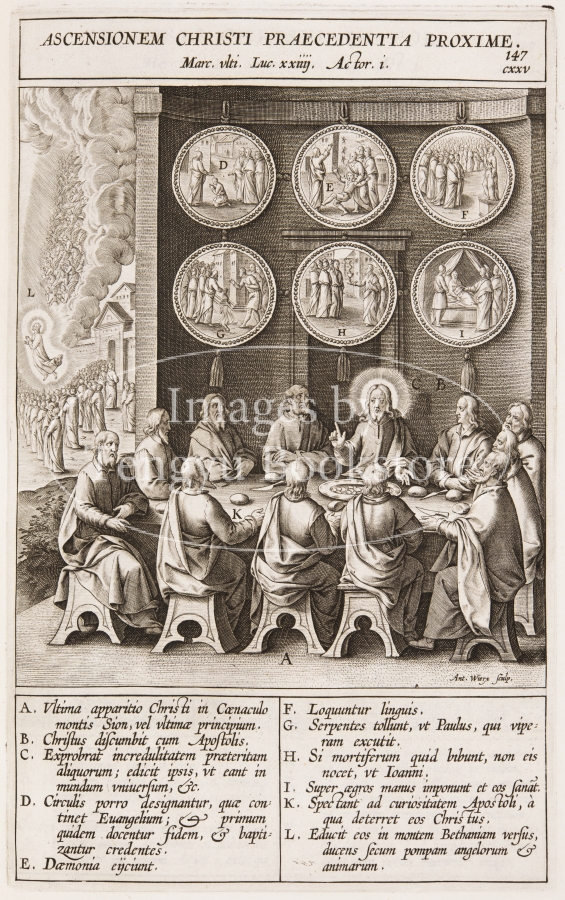 ASCENSIONEM CHRISTI PRAECEDENTIA PROXIME.
Marc. vlti. Luc. xxiiij. Actor. i.
147
cxxv
D
E
F
L
G
H
I
C B
Images by
K
A
Ant. Wierx sculp.
A. Vltima apparitio Christi in Cœnaculo
montis Sion, vel vltimæ principium.
B. Christus discumbit cum Apostolis.
C. Exprobrat incredulitatem præteritam
aliquorum; edicit ipsis, vt eant in
mundum vniuersum, &c.
D. Circulis porro designantur, quæ con-
tinet Euangelium; & primum
quidem docentur fidem, & bapti-
zantur credentes.
E. Dæmonia eijciunt.
F. Loquuntur linguis.
G. Serpentes tollunt, vt Paulus, qui vipe-
ram excutit.
H. Si mortiferum quid bibunt, non eis
nocet, vt Ioanni.
I. Super ægros manus imponunt et eos sanāt.
K. Spectant ad curiositatem Apostoli, a
qua deterret eos Christus.
L. Educit eos in montem Bethaniam versus,
ducens secum pompam angelorum &
animarum.